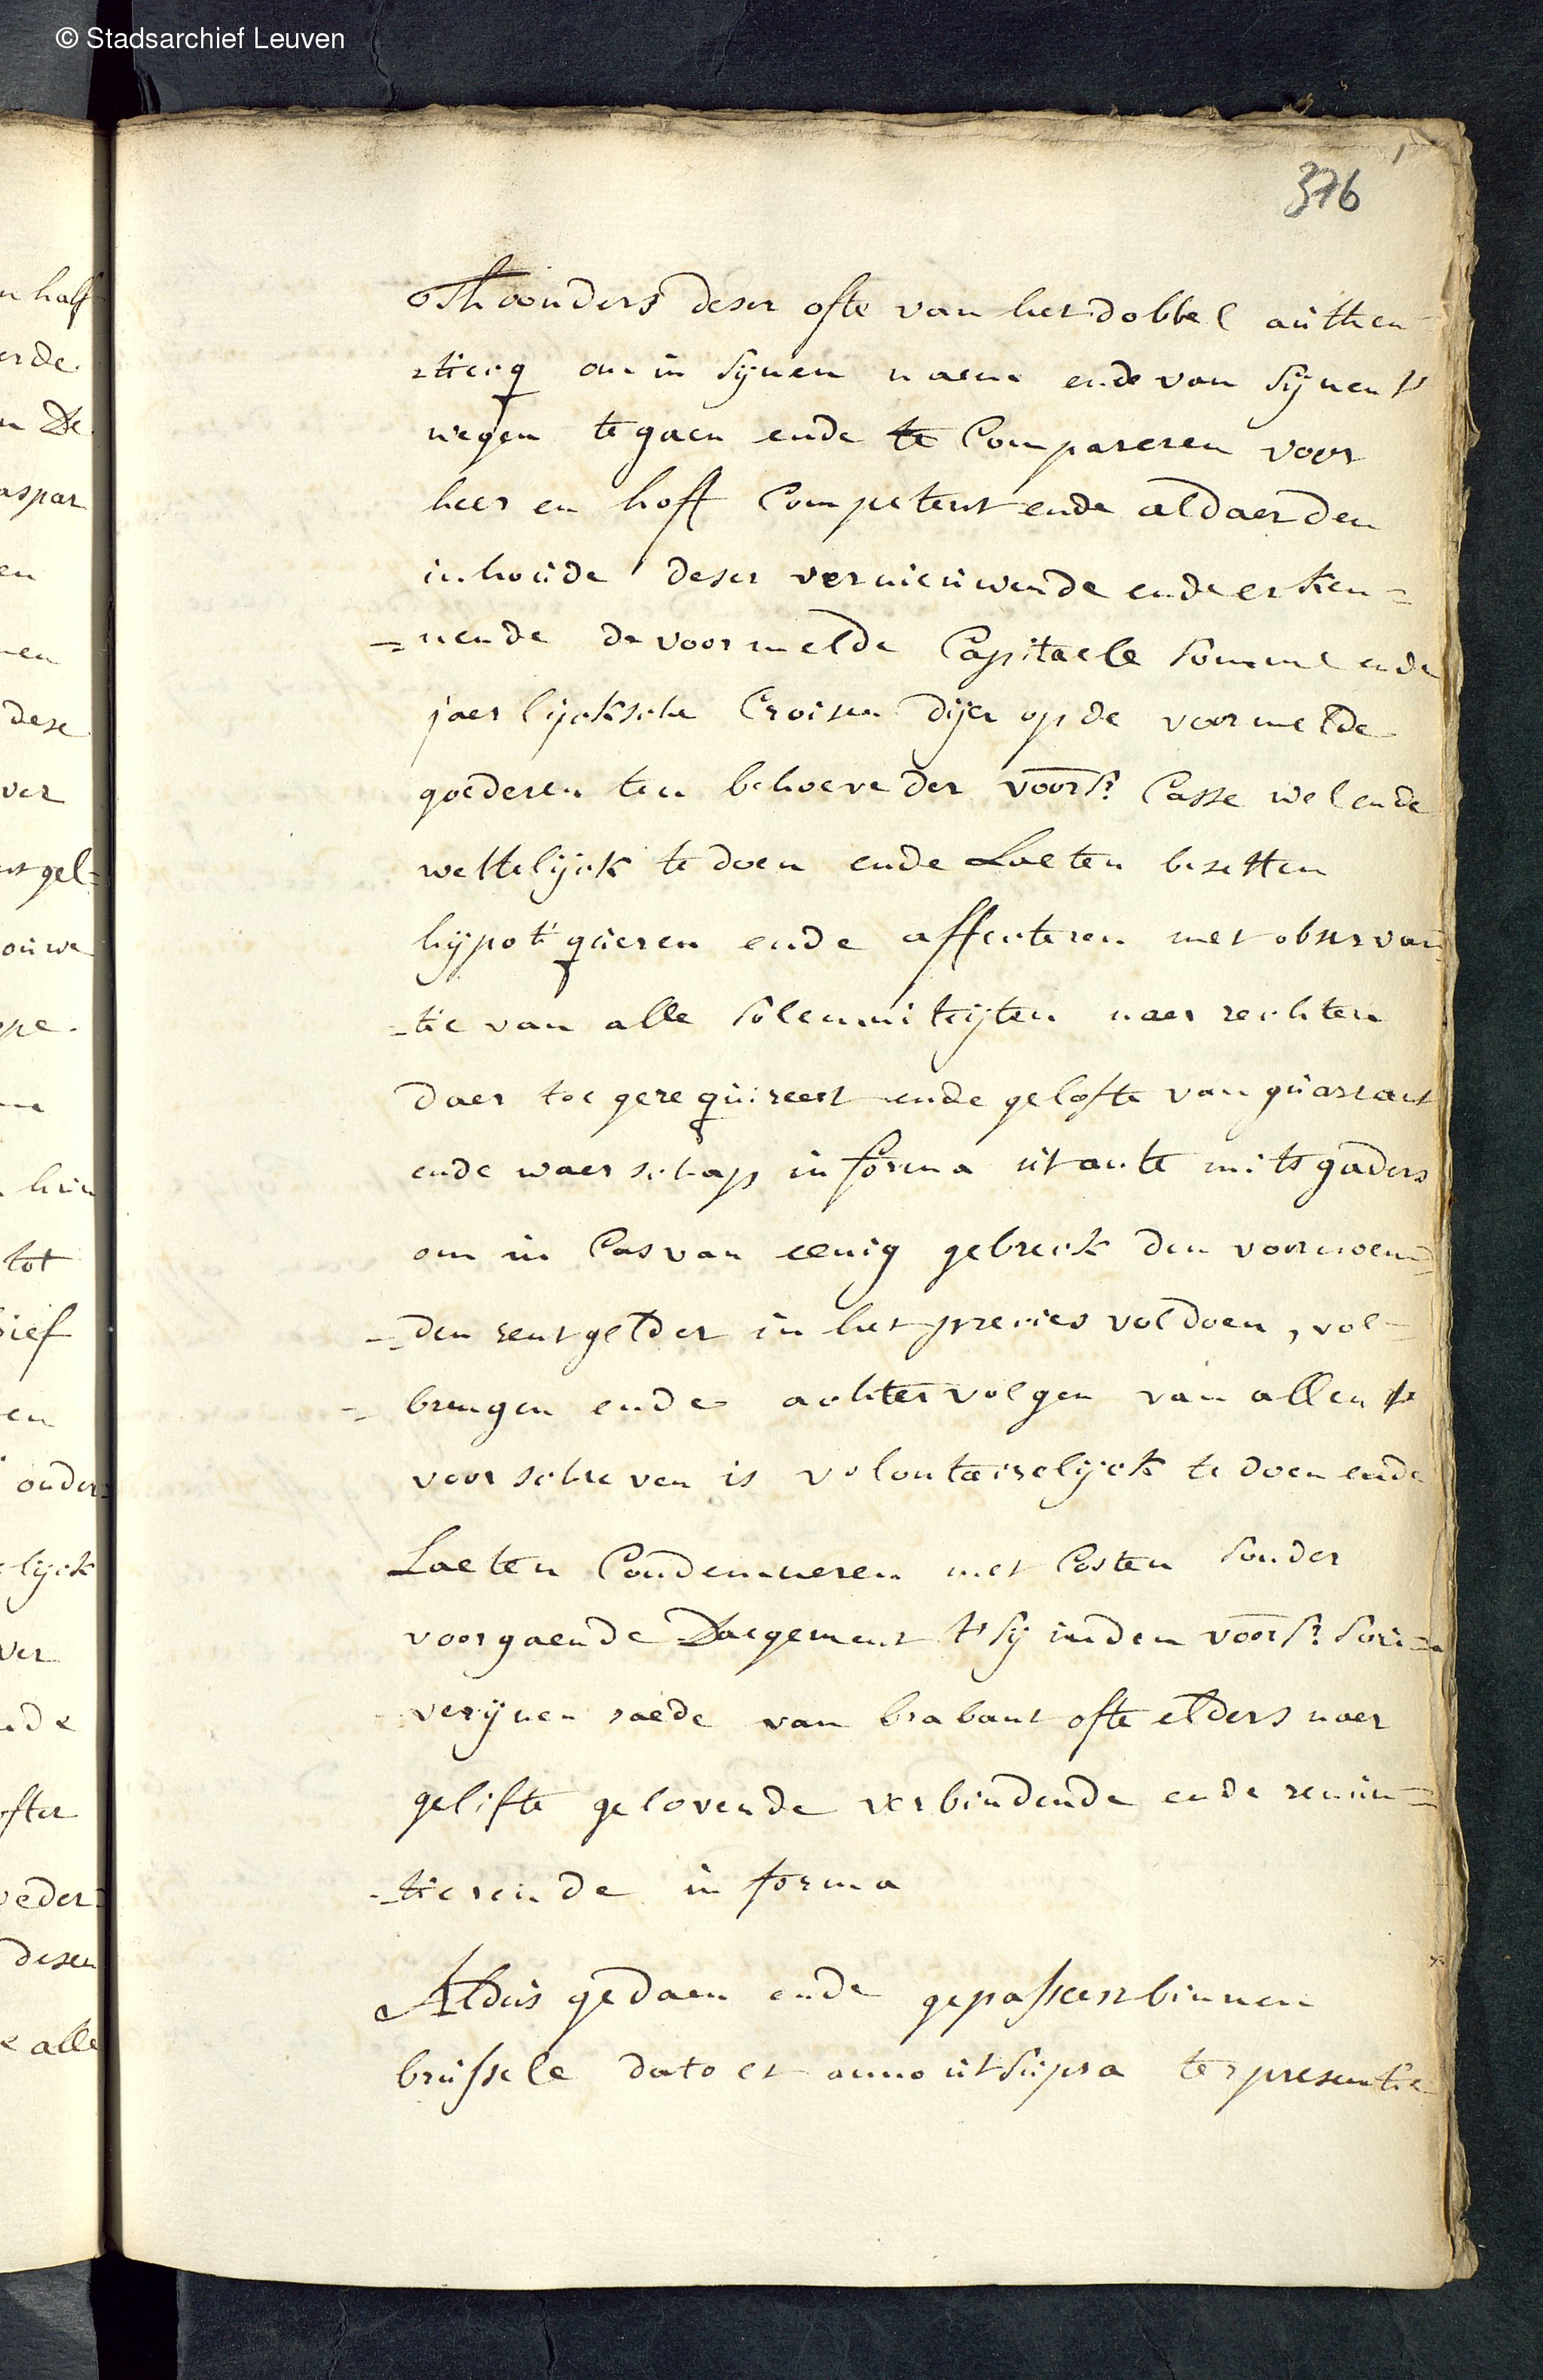 © Stadsarchief Leuven
376
Thoonders deser ofte van het dobbel authen
-ticq om in sijnen naem ende van sijnent
wegen te gaen ende te Compareren voor
heer en hoff Competent ende aldaer den
inhoude deser vernieuwende ende erken=
=nende de voormelde Capitaele somme ende
jaerlijcksche Croisen dijer op de voormelde
goederen ten behoeve der voors: Casse wel ende
wettelijck te doen ende Laeten besetten
hijpotiqueren ende affecteren met observan=
-tie van alle solemniteijten naer rechten
daer toe gerequireert ende gelofte van guarrant
ende waerschap in forma ut ante mitsgaders
om in Cas van eenig gebreck den voornoem=
-den rentgelder in het precies voldoen, vol=
-brengen ende achtervolgen van allen 't
voorschreven is volontairelijck te doen ende
Laeten Condemneren met Costen sonder
voorgaende Daegement 't sij in den voors: sou=
verijnen raede van brabant ofte elders naer
geliefte gelovende verbindende ende renun=
-tierende in forma
Aldus gedaen ende gepasseert binnen
brussele dato et anno ut supra ter presentie
n half
erde
De
aspar
en
nen
dese
ver
gel=
ouwe
pe.
tot
ief
en
onder=
lijck
ver
nde
ofter
veder=
desen
alle